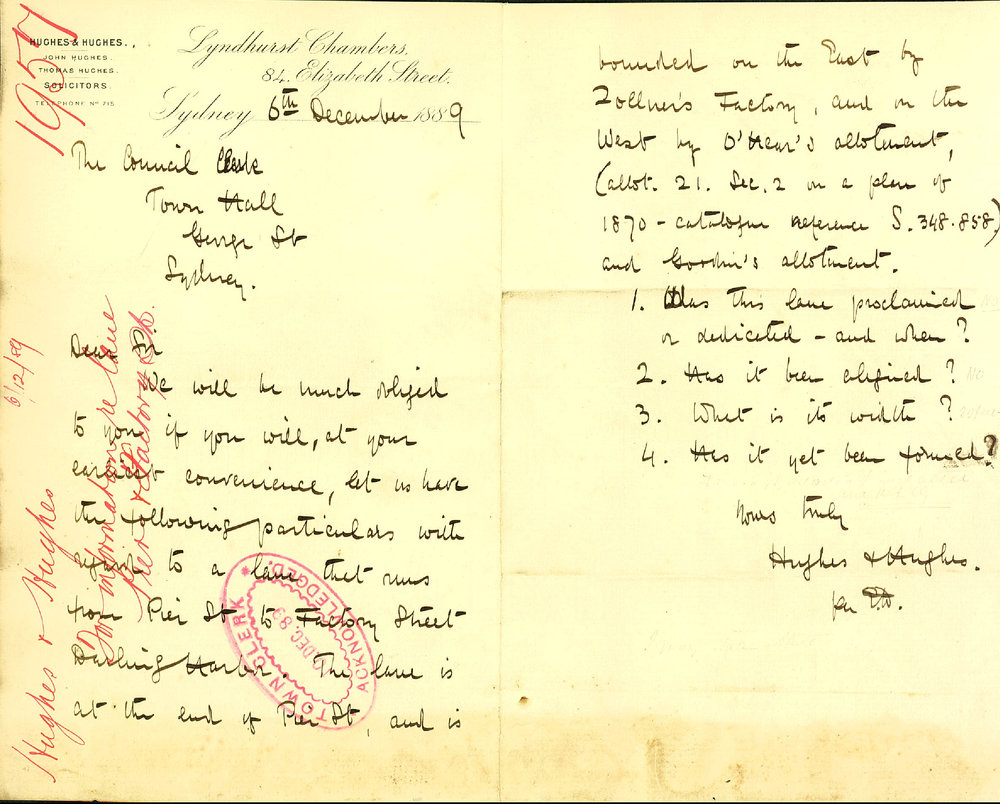 HUGHES & HUGHES.
JOHN HUGHES.
THOMAS HUGHES.
SOLICITORS
TELEPHONE Nº 715
Lyndhurst Chambers,
84. Elizabeth Street.
Sydney 6th December 1889
The Council Clerk
Town Hall
George St
Sydney.
Dear Sir
We will be much obliged
to you if you will, at your
earliest convenience, let us have
the following particulars with
regard to a lane that runs
from Pier St to Factory Street
Darling Harbor. The lane is
at the end of Pier St, and is
bounded on the East by
Zollner's Factory, and on the
West by O'Hear's allotment,
(allot. 21. Sec. 2 on a plan of
1870 - catalogue reference S. 348.858.)
and Goodin's allotment.
1. Was this lane proclaimed
or dedicated - and when?
2. Has it been aligned?
3. What is its width?
4. Has it yet been formed?
Yours truly
Hughes & Hughes.
per
1957
6/12/89
Hughes & Hughes
For information re lane
Pier & Factory Sts.
TOWN CLERK
DEC. 89
ACKNOWLEDGED.
No